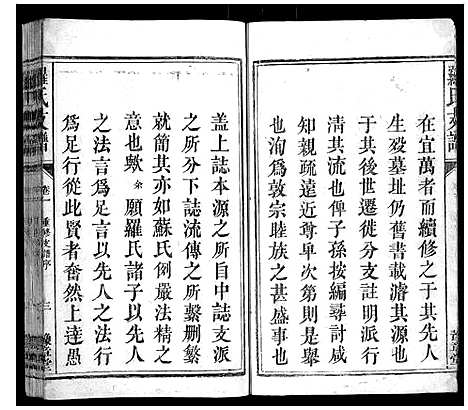 羅氏支譜
在宜萬者而續修之于其先人
生歿墓址仍舊書載濬其源也
于其後世遷徙分支註明派行
清其流也俾子孫按編尋討咸
知親疏遠近尊卑次第則是舉
也洵爲敦宗睦族之甚盛事也
蓋上誌本源之所自中誌支派
之所分下誌流傳之所繫刪繁
就簡其亦如蘇氏例嚴法精之
意也歟余願羅氏諸子以先人
之法言爲足言以先人之法行
爲足行從此賢者奮然上達愚
羅氏支譜
卷一
重修支譜序
三
豫章堂